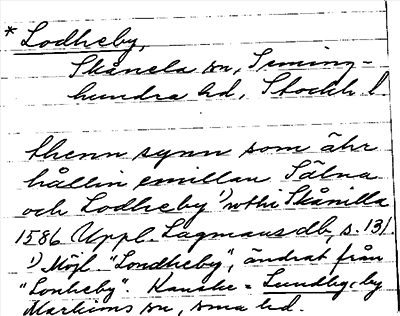 * Lodheby,
Skånela sn, Seming-
hundra hd, Stockh. l.
thenn synn som ähr
hållin emillan Tälna
och Lodheby ¹) wthi Skånilla
1586 Uppl. Lagmansdb, s. 131.
¹) Möjl. "Londheby", ändrat från
"Lonheby". Kanske = Lundby, by
Markims sn, sma hd.